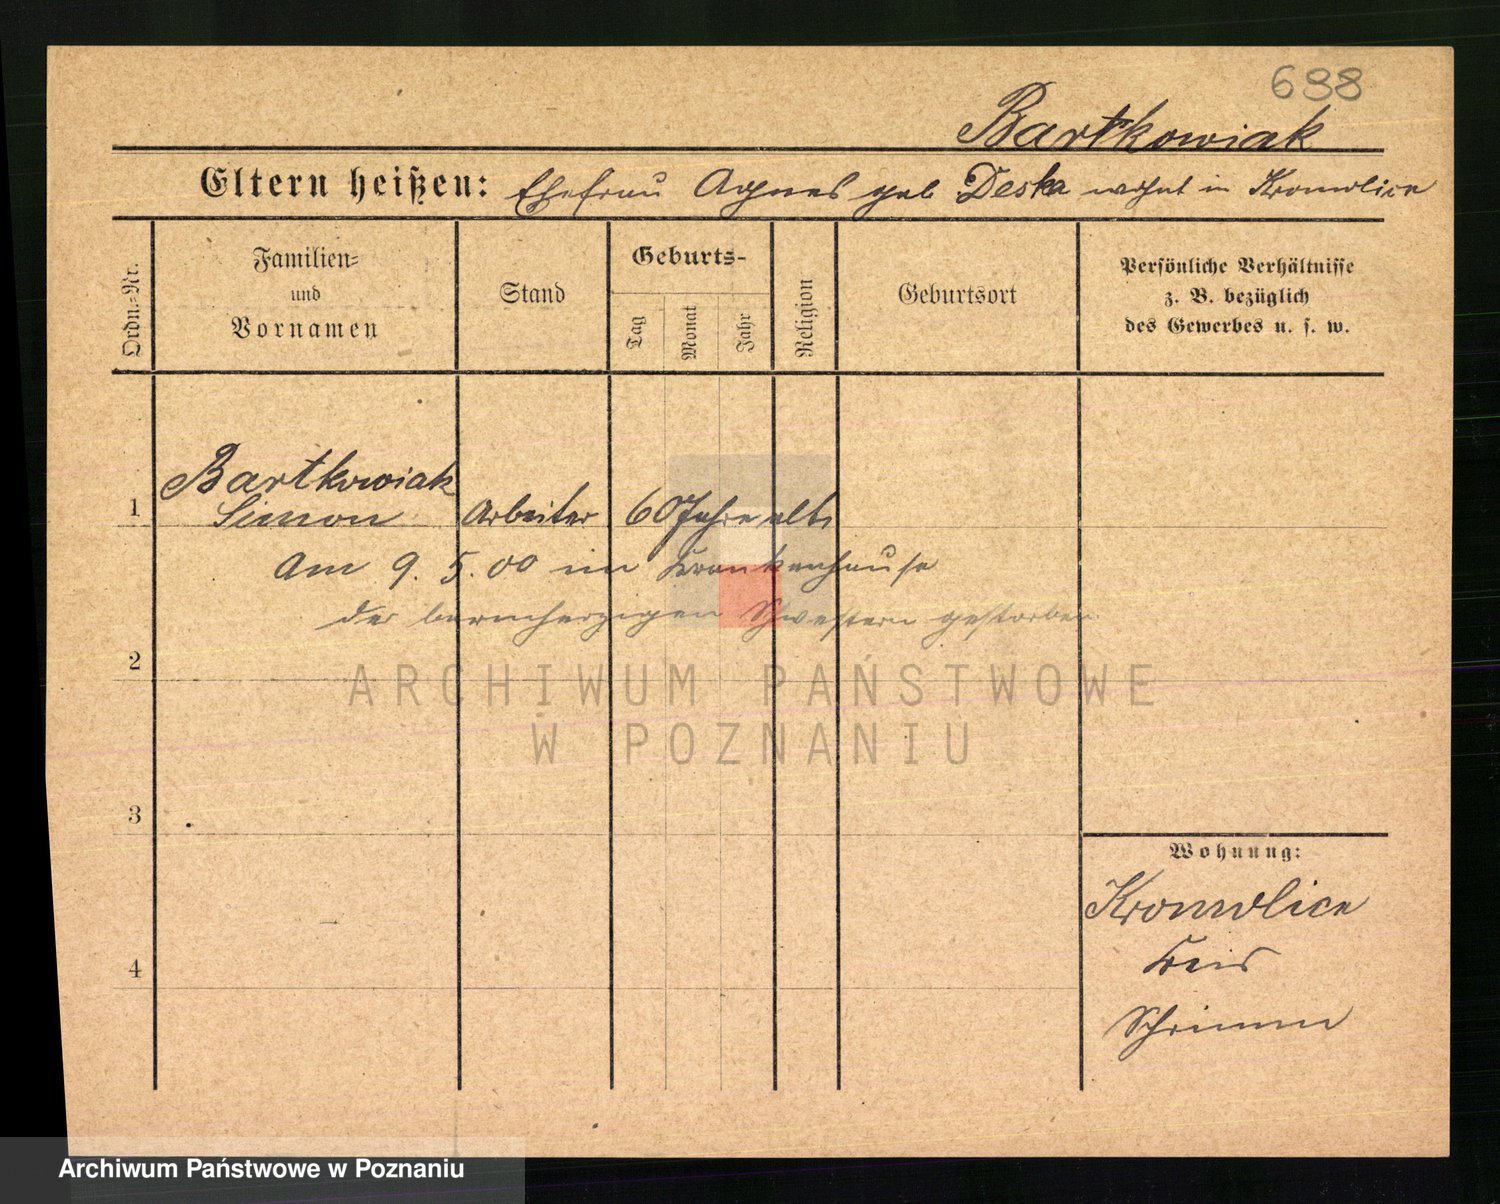 698
Bartkowiak
Eltern heißen: Ehefrau Agnes geb Deska wohnt in Kromolice
Ordn.-Nr.
Familien-
und
Vornamen
Stand
Geburts-
Tag
Monat
Jahr
Religion
Geburtsort
Persönliche Verhältnisse
z. B. bezüglich
des Gewerbes u. s. w.
Bartkowiak
1 Simon Arbeiter 60 Jahre alt
Am 9. 5. 00 im Krankenhause
der barmherzigen Schwestern gestorben.
2
ARCHIWUM PAŃSTWOWE
W POZNANIU
3
Wohnung:
Kromolice
Kreis
4
Schrimm
Archiwum Państwowe w Poznaniu